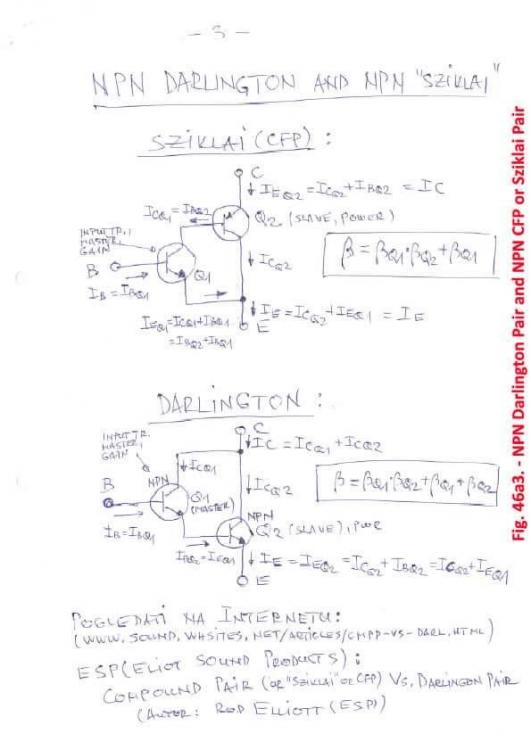 - 3 -
NPN DARLINGTON AND NPN "SZIKLAI"
SZIKLAI (CFP) :
C
IEQ2 = ICQ2 + IBQ2 = IC
ICQ1 = IBQ2
Q2 (SLAVE, POWER)
INPUT TR.,
MASTER,
GAIN
B
Q1
ICQ2
β = βQ1·βQ2 + βQ1
IB = IBQ1
IEQ1 = ICQ1 + IBQ1
= IBQ2 + IBQ1
IE = ICQ2 + IEQ1 = IE
E
DARLINGTON :
C
INPUT TR.
MASTER,
GAIN
IC = ICQ1 + ICQ2
ICQ1
B
NPN
Q1
(MASTER)
ICQ2
β = βQ1·βQ2 + βQ1 + βQ2
NPN
Q2 (SLAVE), PWR
IB = IBQ1
IBQ2 = IEQ1
IE = IEQ2 = ICQ2 + IBQ2 = ICQ2 + IEQ1
E
POGLEDATI NA INTERNETU:
(WWW.SOUND.WHSITES.NET/ARTICLES/CMPD-VS-DARL.HTML)
ESP (ELIOT SOUND PRODUCTS) :
COMPOUND PAIR (OR "SZIKLAI" OR CFP) VS. DARLINGON PAIR
(AUTOR: ROD ELLIOTT (ESP))
Fig. 46a3. - NPN Darlington Pair and NPN CFP or Sziklai Pair